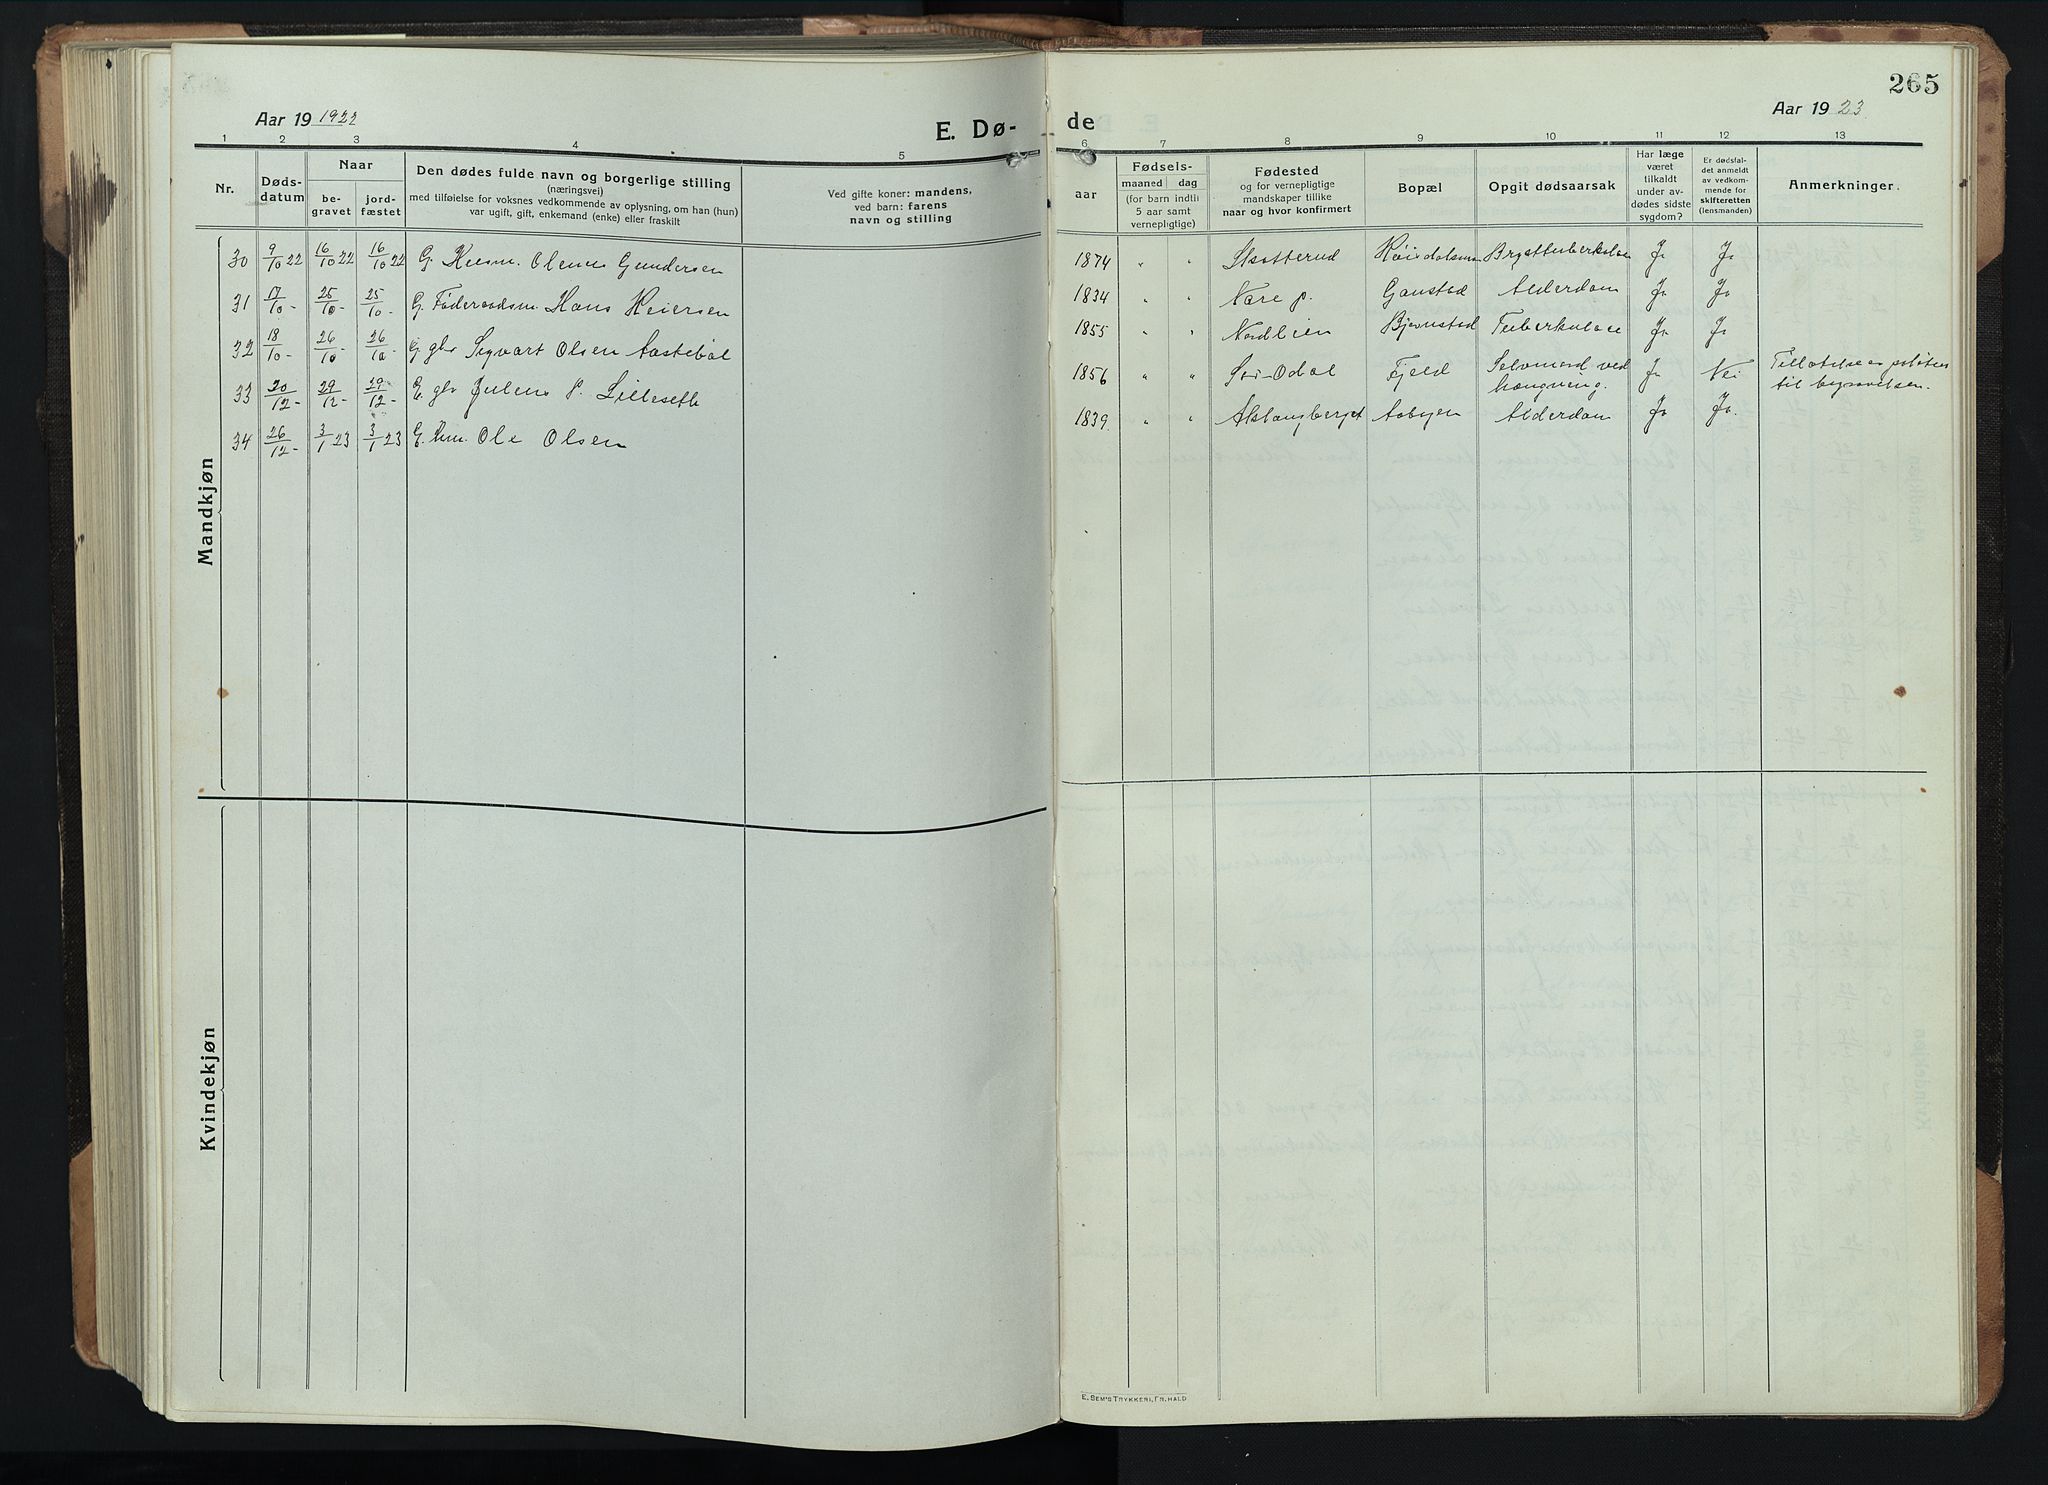 265
Aar 19 1922
E. Dø-
de
Aar 19 23
1 2 3 4 5 6 7 8 9 10 11 12 13
Nr.
Døds-
datum
Naar
be-
gravet
jord-
fæstet
Den dødes fulde navn og borgerlige stilling
(næringsvei)
med tilføielse for voksnes vedkommende av oplysning, om han (hun)
var ugift, gift, enkemand (enke) eller fraskilt
Ved gifte koner: mandens,
ved barn: farens
navn og stilling
aar
Fødsels-
maaned dag
(for barn indtil
5 aar samt
vernepligtige)
Fødested
og for vernepligtige
mandskaper tillike
naar og hvor konfirmert
Bopæl
Opgit dødsaarsak
Har læge
været
tilkaldt
under av-
dødes sidste
sygdom?
Er dødsfal-
det anmeldt
av vedkom-
mende for
skifteretten
(lensmanden)
Anmerkninger.
Mandkjøn
30 9/10 22 16/10 22 16/10 22 G. Olenus Gundersen 1874 " " Skotterud Brysttuberkulose Ja Ja
31 17/10- 25/10- 25/10- G. Føderaadsm. Hans Reiersen 1834 " " Næs p. Ganstad Alderdom Ja Ja
32 18/10- 26/10- 26/10- G gbr Sigvart Olsen Aastebøl 1855 " " Nordlien Bjørnstad Tuberkulose Ja Ja
33 20/12- 29/12- 29/12- E. gbr Julius P. Lilleseth 1856 " " Sør-Odal Fjeld Selvmord ved hængning. Ja Nei Tillatelse av politiet til begravelsen.
34 26/12- 3/1 23 3/1 23 G. Ole Olsen 1839 " " Alstangberget Aabyen Alderdom Ja Ja.
Kvindekjøn
E. SEM'S TRYKKERI, FR. HALD